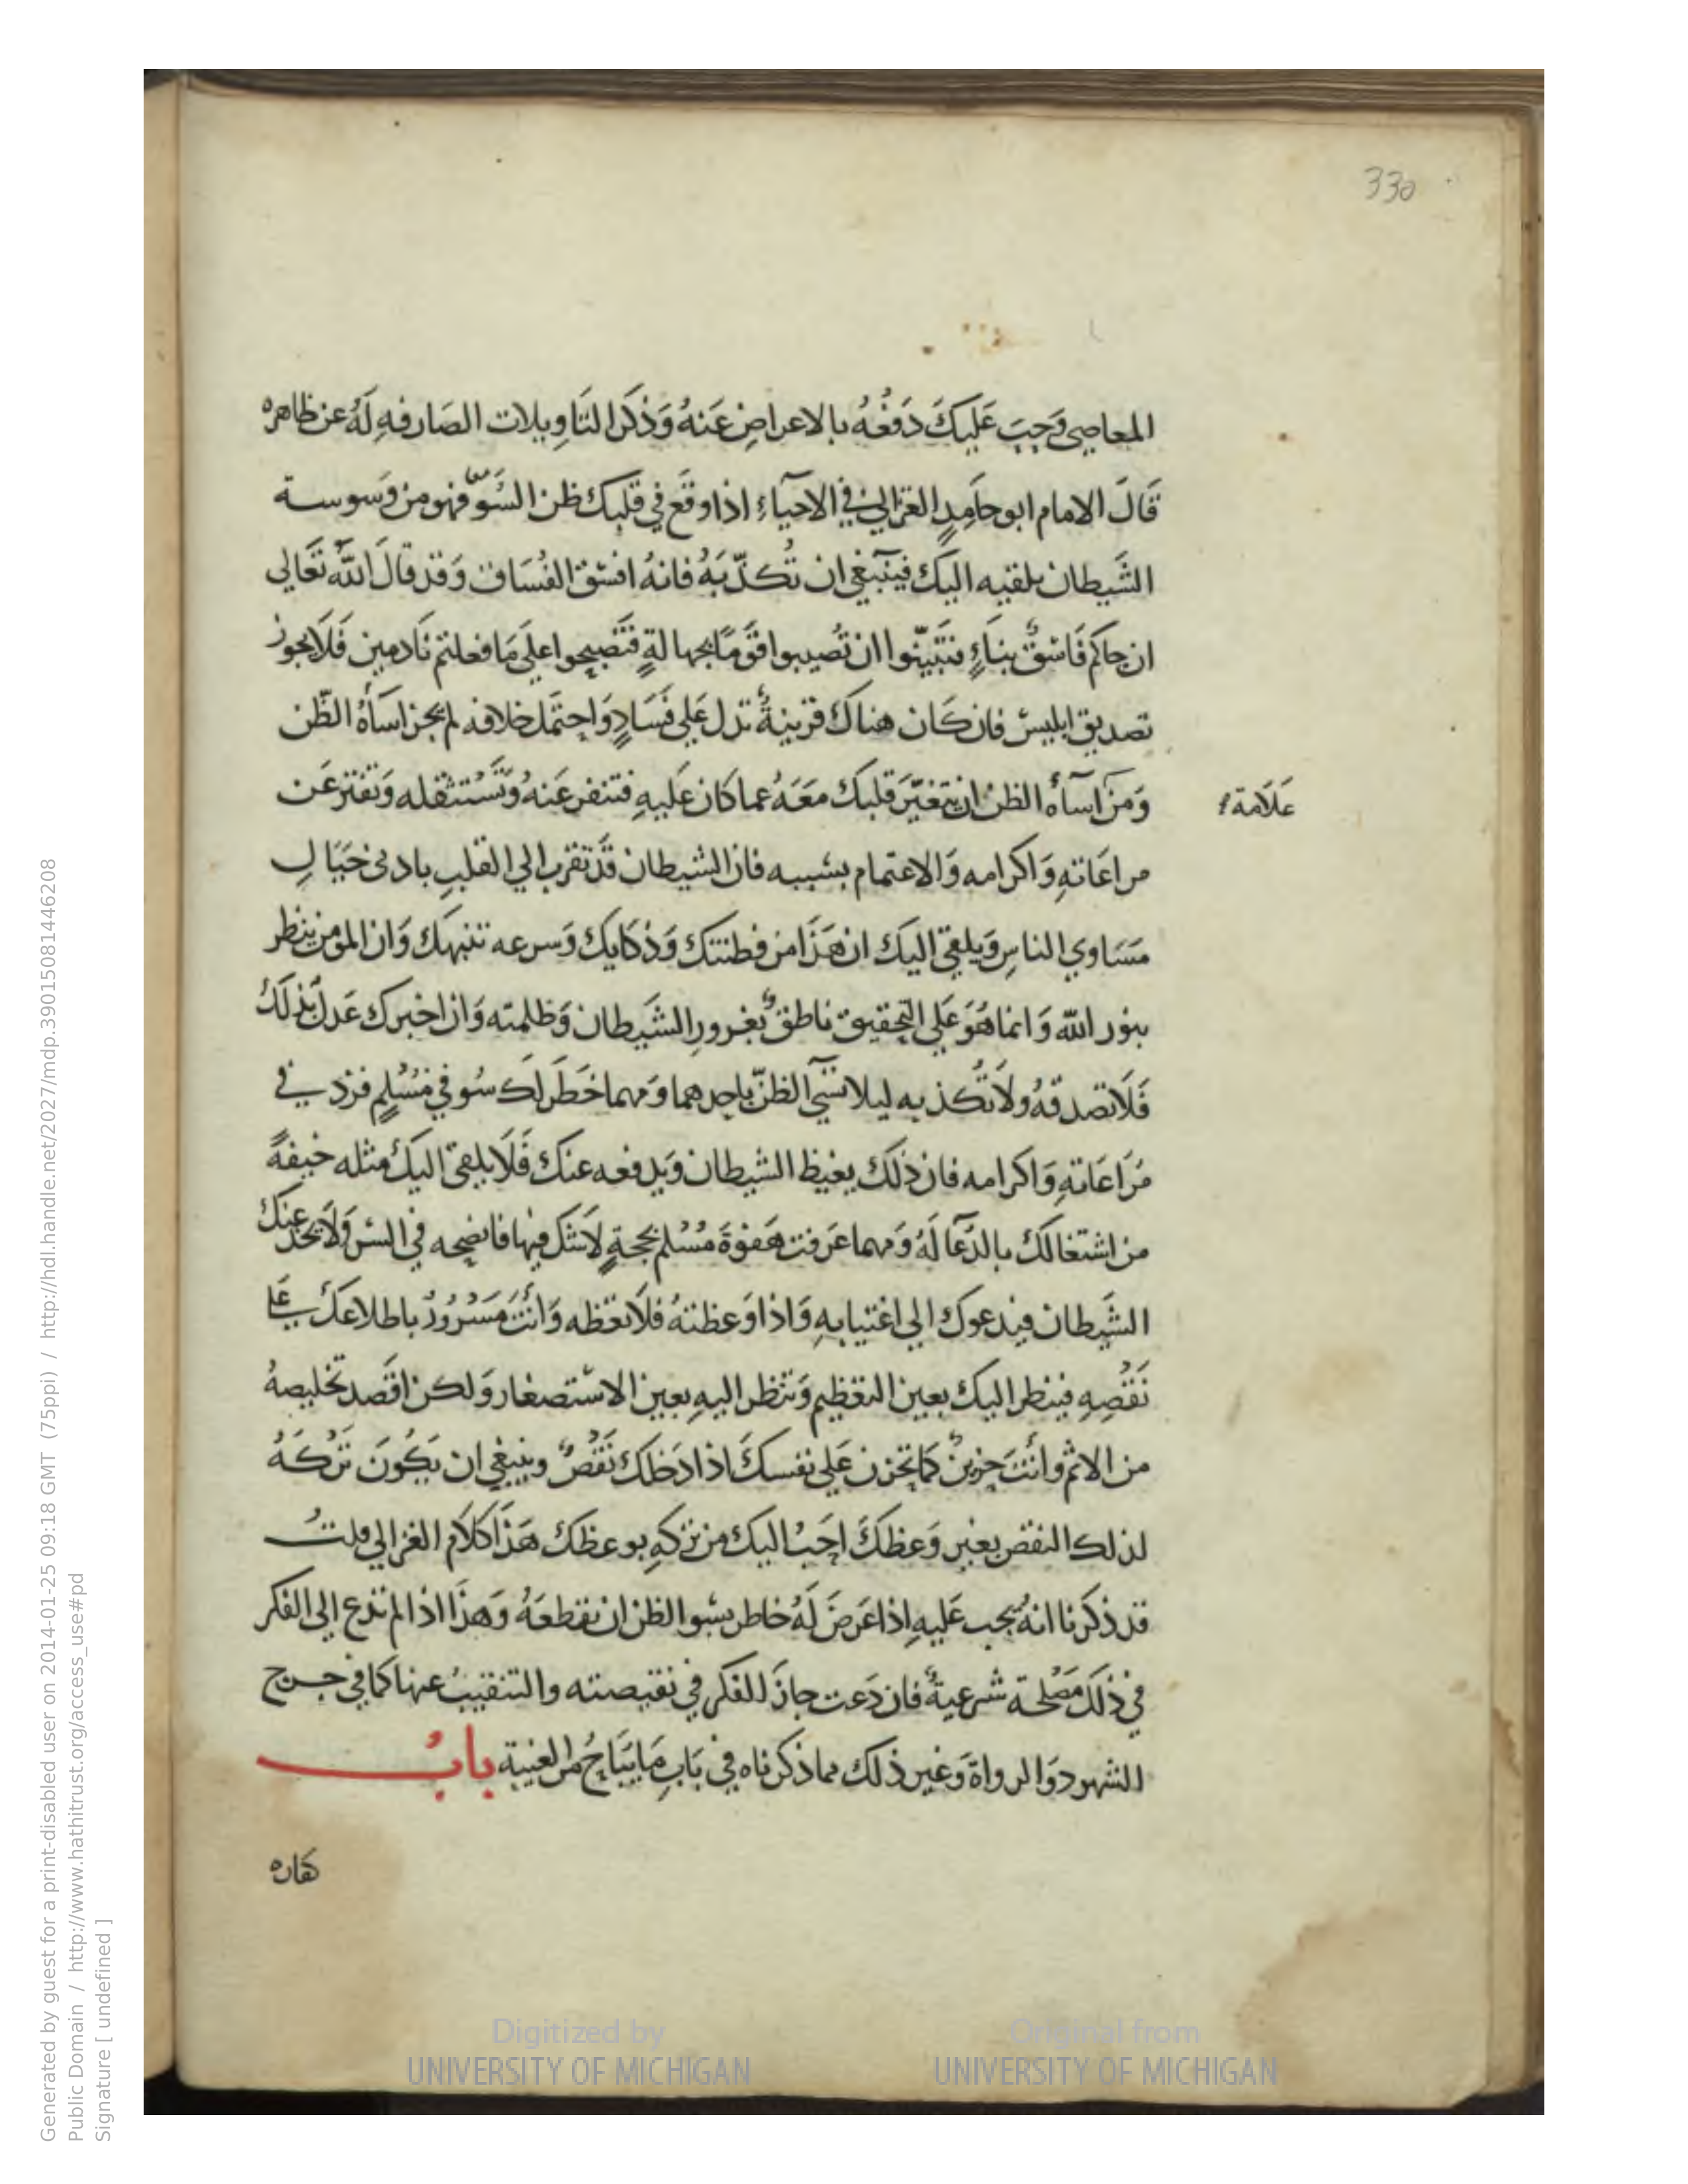 330
المعاصي وَجبَ عَليكَ دَفْعُهُ بالاعراضِ عَنهُ وَذكَر التَاوِيلات الصَارفهِ لَهُ عن ظاهره
قَالَ الامام ابو حَامِدٍ الغزاليُ في الاحيآءِ اذا وقَع في قلبِك ظن السُّوّ فهو من وَسوسة
الشَيطان يلقيه اليك فينَبغي ان تُكذّبَهُ فانهُ افسَق الفُسَاق وَقد قالَ اللّه تَعَالي
ان جاكم فَاسقٌ بنبَاءٍ فتَبَيّنوا ان تُصيبوا قَومًا بجهالةٍ فَتصبِحوا علَي مَا فعلتم نَادمين فَلَا يجوز
تصديق ابليسَ فان كَان هناكَ قرينةٌ تدل عَلي فَسَادٍ وَاحتمَل خلافه لم يجز اسَأةُ الظّن
وَمن اسآءه الظن ان يتغيَّر قلبك معَهُ عما كان عَليهِ فتنفر عَنهُ وَتَسْتثقله وَتفتر عَن
علَامة
مراعَاتهِ وَاكرامه وَالاغتمام بسَببه فان الشيطان قَد تقرب الي القلبِ بادني خيَالِ
مَسَاوي الناسِ وَيلقي اليَك ان هَذَا من فطنتك وَذكَايِك وَسرعه تنبهك وَان المومن ينظر
بنور اللّه وَانما هُوَ عَلي التحقيق ناطقٌ بغرورِ الشَيطان وَظلمته وَان اخبرك عَدلٌ بذلكَ
فَلَا تصدقهُ ولَا تُكذبه ليلا تسيَ الظنّ باحدهما وَمهما خطَر لكَ سُو في مُسْلِمٍ فزد في
مُرَاعَاتهِ وَاكرامه فان ذلَك يغيظ الشيطان وَيدفعه عنك فَلَا يلقي اليَك مثله خيفةً
من اشتغالَك بالدُعَآ لَهُ وَمهما عَرَفت هَفوَة مُسْلم بحجةٍ لَا شك فيها فانصحه في السّر وَلَا يخدعنك
الشَيطان فيدعوك الي اغتيابهِ وَاذا وَعظتهُ فلَا تعظه وَانتَ مَسْرُورُ باطلاعكَ عَلي
نَقْصِهِ فينظر اليك بعين التعظيم وَتنظر اليهِ بعين الاستصغار وَلكن اقصد تخليصهُ
من الاثم وانتَ حزينٌ كما تحزن عَلي نفسكَ اذا دَخلك نَقْصٌ وينبغي ان يَكُونَ تَرْكَهُ
لذلك النقص بغير وَعظكَ احَبُ اليك من تركهِ بوعظك هَذَا كلَام الغزالي قلتُ
قد ذكرنا انهُ يجب عَليهِ اذا عَرضَ لَهُ خاطر بسُو الظن ان يقطعَهُ وَهذَا اذا لم تدع الي الفكر
في ذلَك مَصْلحة شرعيةٌ فان دَعت جازَ الفكر في نقيصته والتنقيبُ عنها كما في جرح
الشهود وَالرواة وَغير ذلك مما ذكرناه في بَابِ مَا يبَاحُ من الغيبة بابُ
Generated by guest for a print-disabled user on 2014-01-25 09:18 GMT (75ppi) / http://hdl.handle.net/2027/mdp.39015081446208
Public Domain / http://www.hathitrust.org/access_use#pd
Signature [ undefined ]
Digitized by
UNIVERSITY OF MICHIGAN
Original from
UNIVERSITY OF MICHIGAN